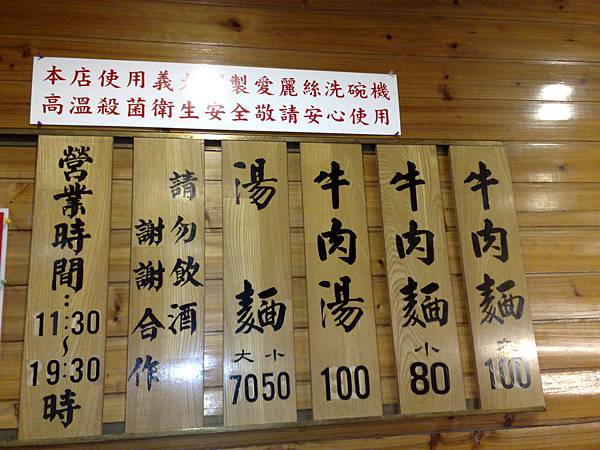 本店使用義大利製愛麗絲洗碗機
高溫殺菌衛生安全敬請安心使用
牛肉麵
大
100
牛肉麵
小
80
牛肉湯
100
湯麵
大 小
70 50
請勿飲酒
謝謝合作
營業時間:
11:30
~
19:30
時